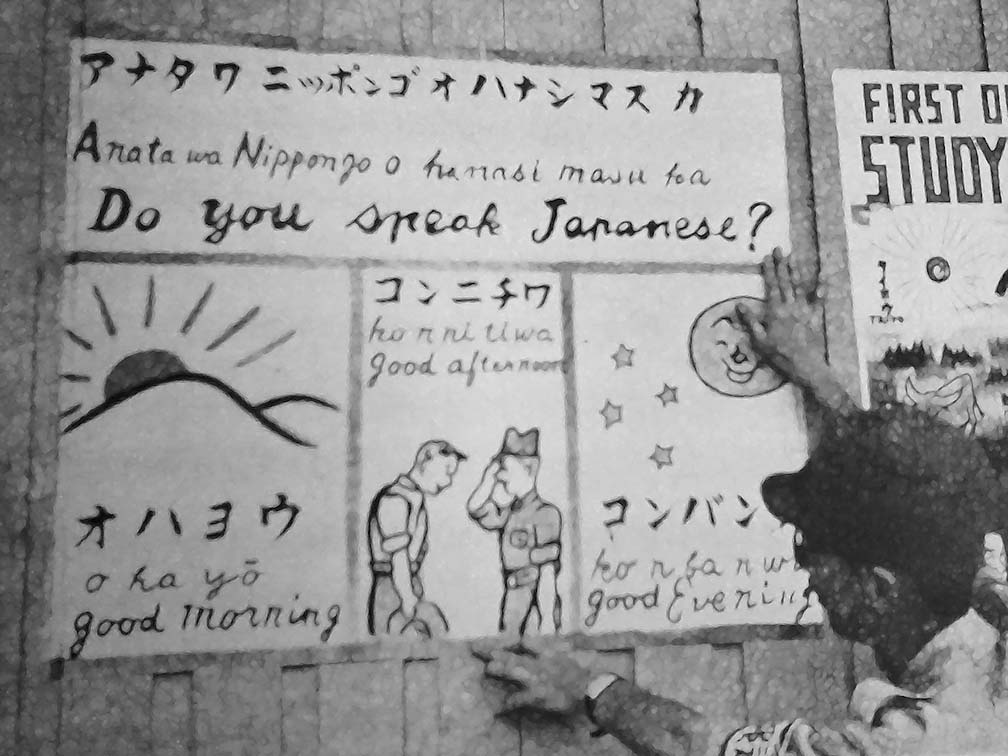 アナタワ ニッポンゴ オ ハナシマスカ
Anata wa Nippongo o hanasi masu ka
Do you speak Japanese?
オハヨウ
o ha yō
good morning
コンニチワ
ko n ni ti wa
good afternoon
コンバン
ko n ba n wa
good Evening
FIRST
STUDY